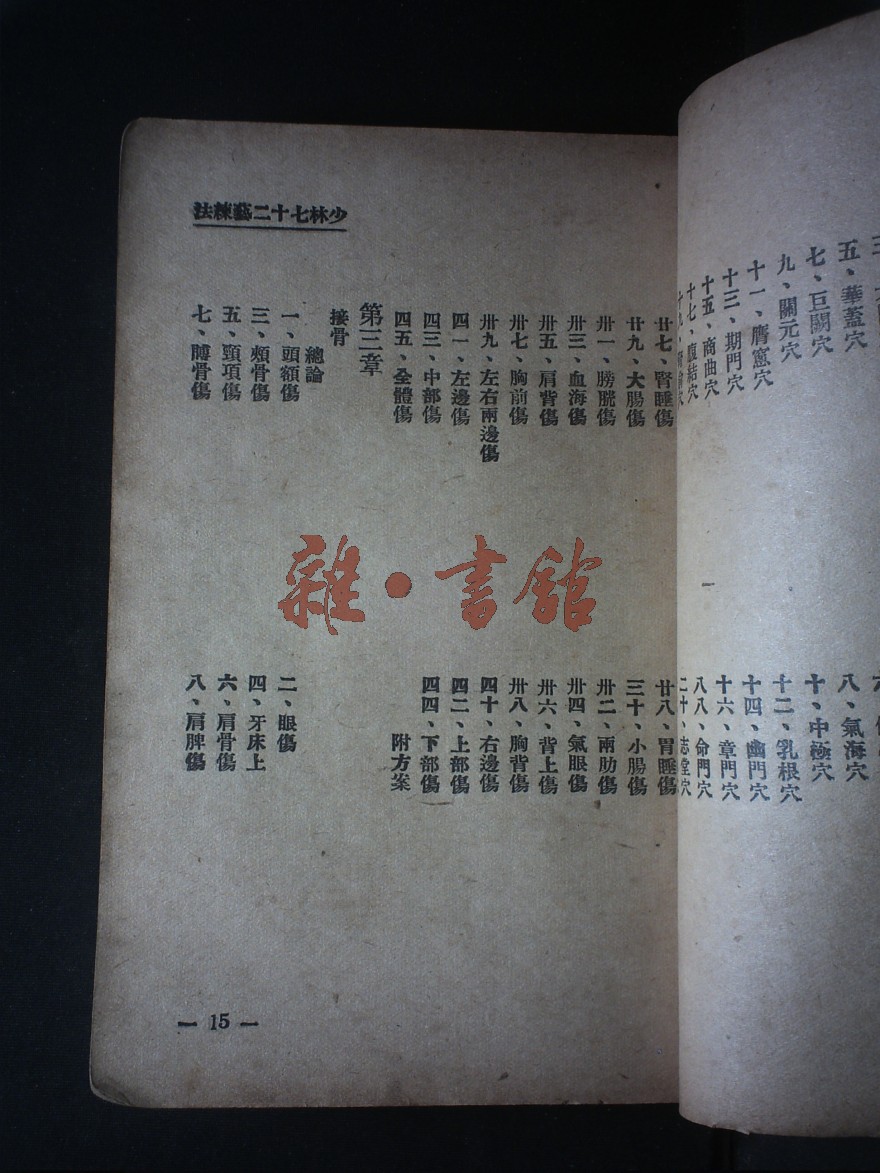 五、華蓋穴
八、氣海穴
七、巨闕穴
十、中極穴
九、關元穴
十二、乳根穴
十一、膺窻穴
十四、幽門穴
十三、期門穴
十六、章門穴
十五、商曲穴
八八、命門穴
十七、腹結穴
二十、志堂穴
一
少林七十二藝練法
廿七、腎睡傷
廿八、胃睡傷
廿九、大腸傷
三十、小腸傷
卅一、膀胱傷
卅二、兩肋傷
卅三、血海傷
卅四、氣眼傷
卅五、肩背傷
卅六、背上傷
卅七、胸前傷
卅八、胸背傷
卅九、左右兩邊傷
四十、右邊傷
四一、左邊傷
四二、上部傷
四三、中部傷
四四、下部傷
四五、全體傷
附方案
第三章
接骨
總論
一、頭額傷
二、眼傷
三、頰骨傷
四、牙床上
五、頸項傷
六、肩骨傷
七、膊骨傷
八、肩脾傷
— 15 —
雜·書館